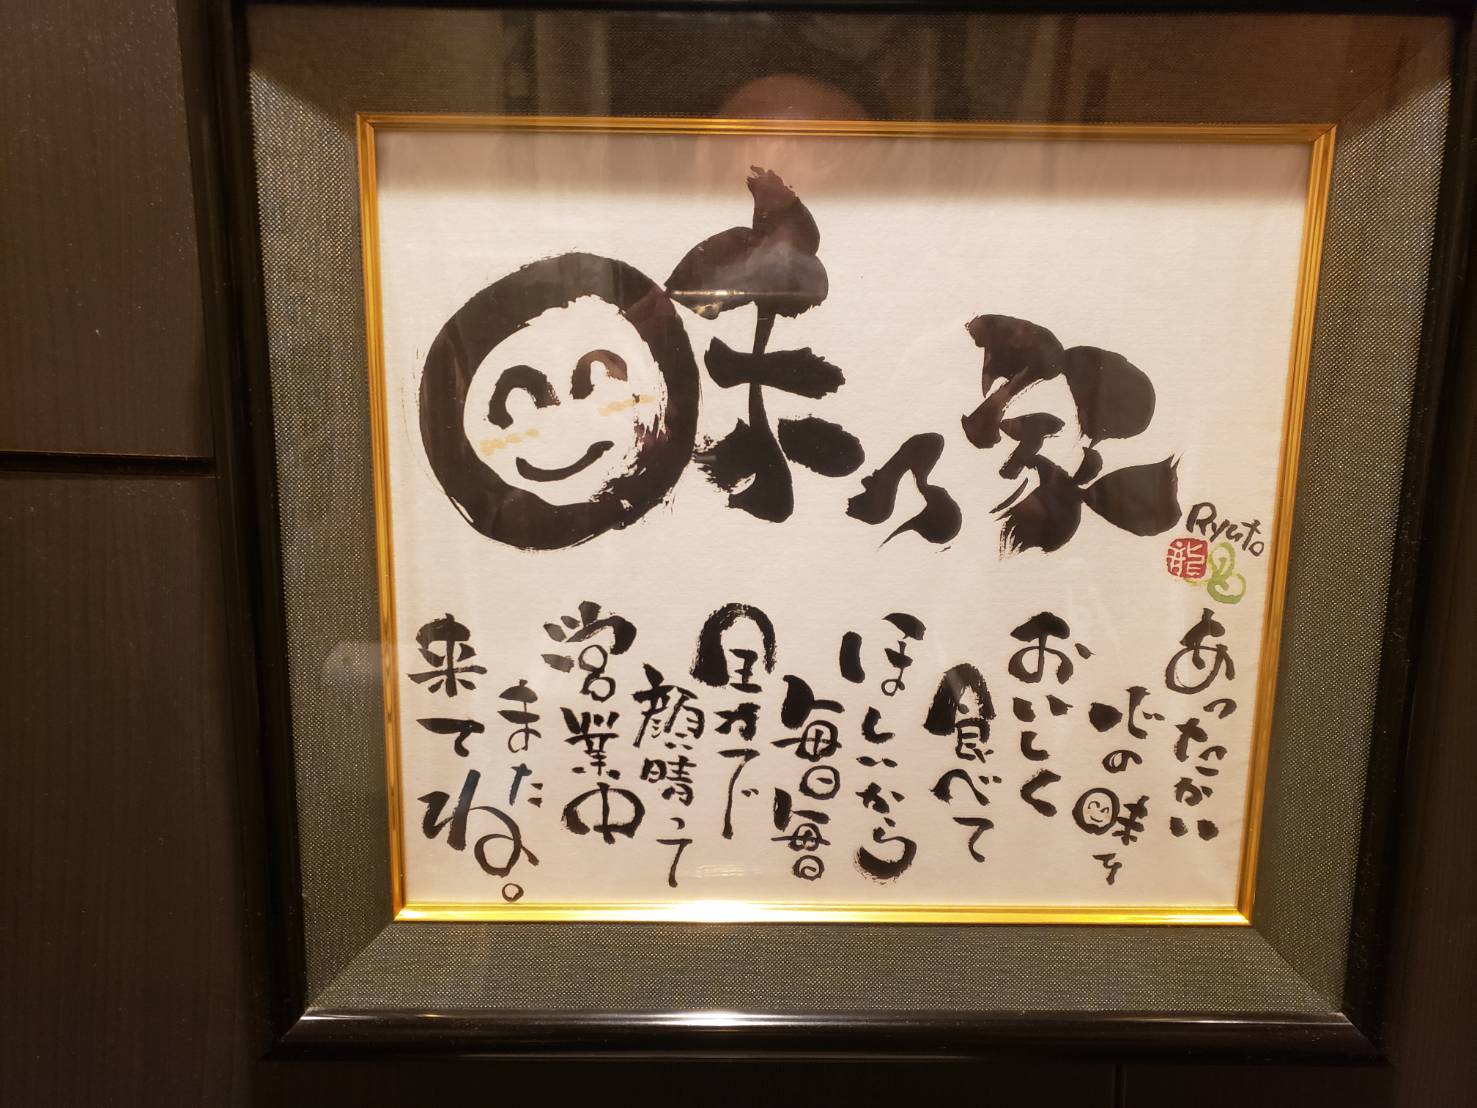 味乃家
Ryuto
龍
あったかい
心の味を
おいしく
食べて
ほしいから
毎日毎日
全力で
顔晴って
営業中
また
来てね。